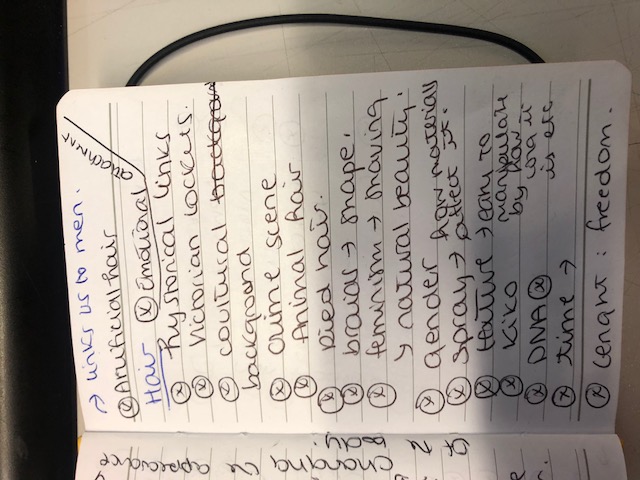 → links us to men.
ⓧ Artificial hair
attachment
Hair ⓧ Emotional
hystorical links
ⓧ Victorian lockets.
ⓧ coultural
background
ⓧ crime scene
ⓧ Animal hair
ⓧ Died hair.
ⓧ braids → shape.
ⓧ feminism → shaving
↳ natural beauty.
ⓧ Gender how materials
ⓧ Spray → affect it.
ⓧ → easy to
manipulate
ⓧ Kiko by how it
ⓧ DNA ⓧ is etc
ⓧ time →
ⓧ Lenght : freedom.
changing appearance
of body.